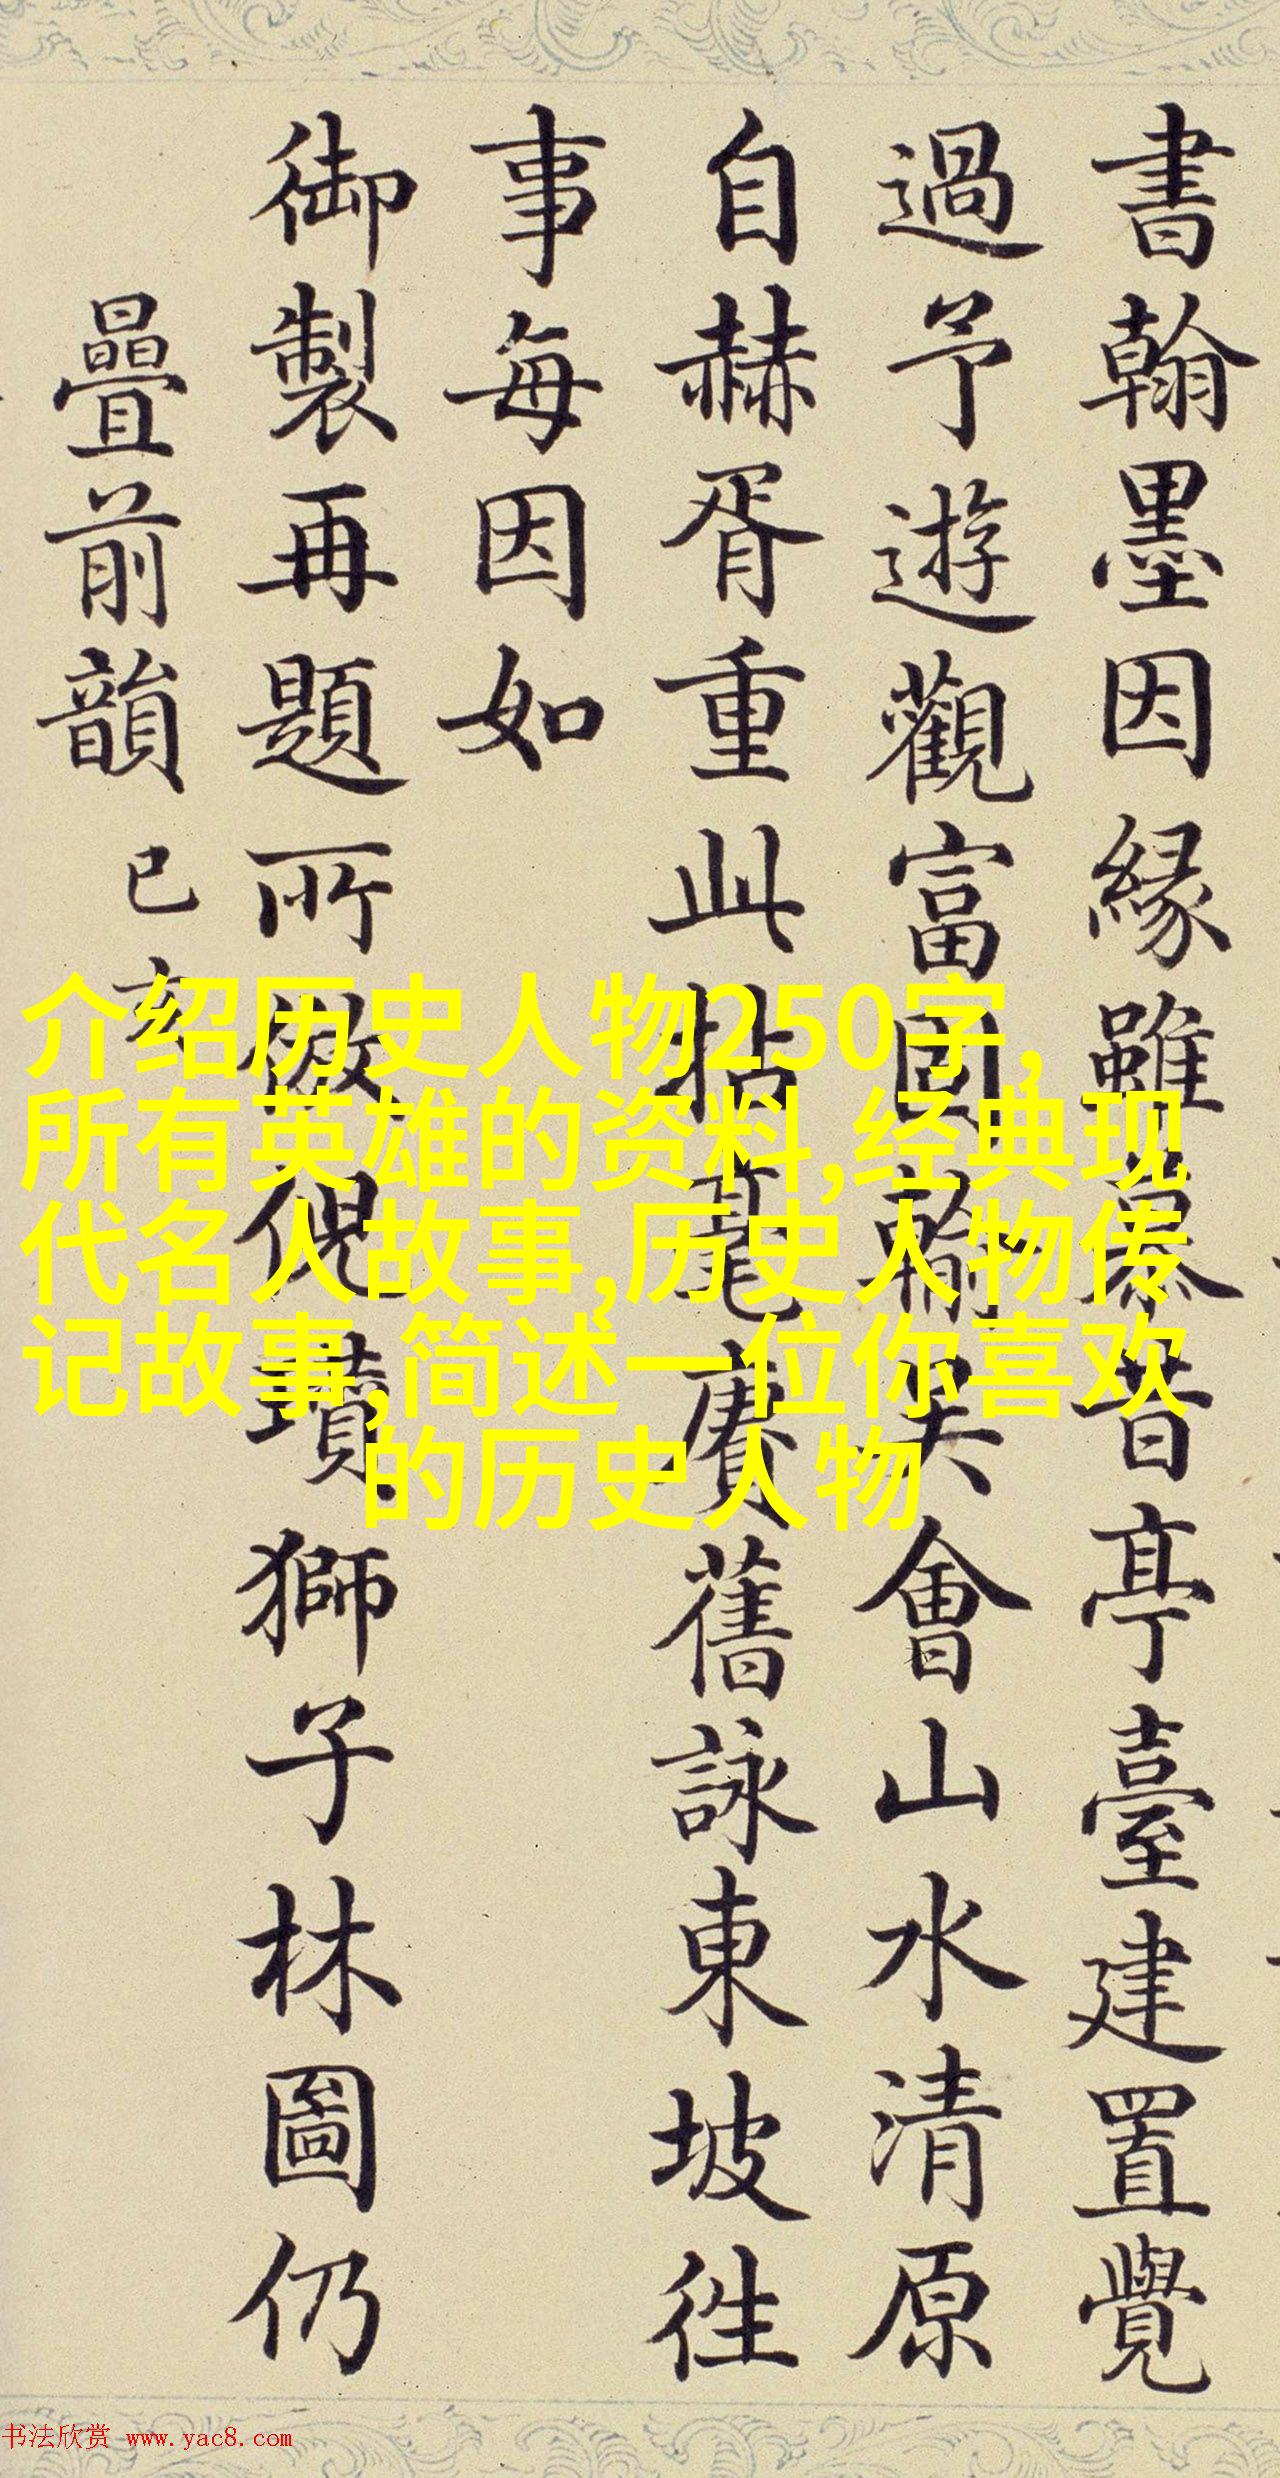 書翰墨因緣雖慕昔亭臺建置覺
過予遊觀富圖輸吳會山水清原
自赫胥重此拈毫賡舊詠東坡徃
事每因如
御製再題所倣倪瓚獅子林圖仍
疊前韻己亥
介绍历史人物250字,
所有英雄的资料,经典现
代名人故事,历史人物传
记故事,简述一位你喜欢
的历史人物
书法欣赏 www.yac8.com